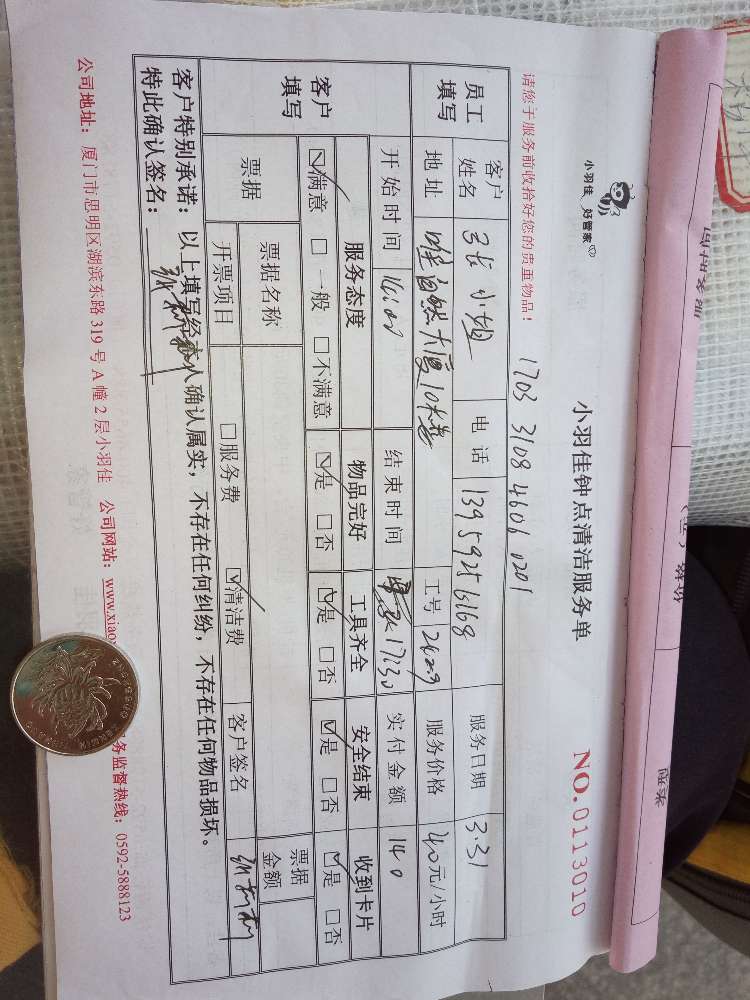 小羽佳 好管家
小羽佳钟点清洁服务单
NO.0113010
1703 3108 4606 0201
请您于服务前收拾好您的贵重物品!
员工填写 客户姓名 张小姐 电话 13959256168 服务日期 3.31
地址 自然大厦10 工号 2629 服务价格 40元/小时
客户填写 开始时间 14:00 结束时间 17:30 实付金额 140
服务态度 物品完好 工具齐全 安全结束 收到卡片
☑满意 □一般 □不满意 ☑是 □否 ☑是 □否 ☑是 □否 ☑是 □否
票据 票据名称 票据金额
开票项目 □服务费 ☑清洁费 客户签名
客户特别承诺:以上填写经本人确认属实,不存在任何纠纷,不存在任何物品损坏。
特此确认签名:
公司地址:厦门市思明区湖滨东路 319 号 A 幢 2 层小羽佳 公司网站:www.xiao 务监督热线:0592-5888123